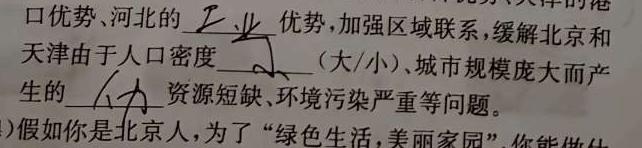 天津的港
口优势、河北的工业优势,加强区域联系,缓解北京和
天津由于人口密度____(大/小)、城市规模庞大而产
生的____资源短缺、环境污染严重等问题。
)假如你是北京人,为了“绿色生活,美丽家园”,你能做什